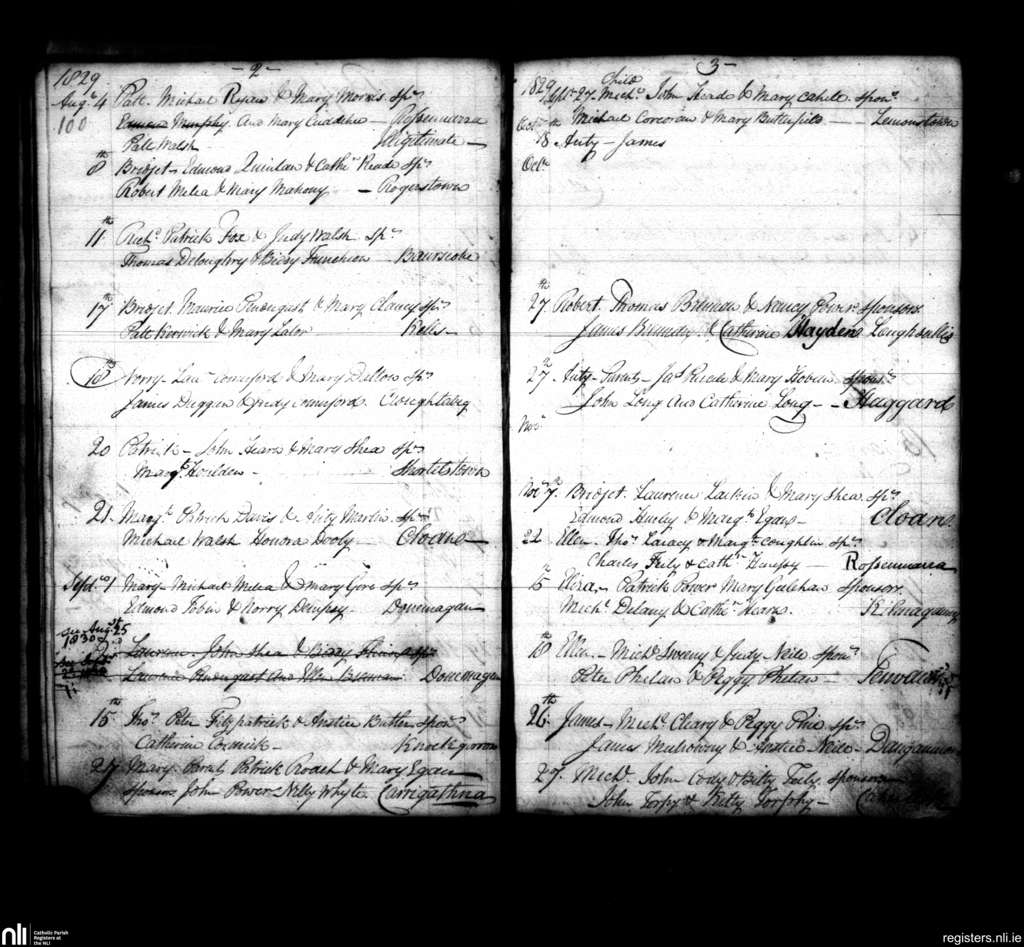 - 2 -
1829
Augt 4 Patt. Michael Ryan & Mary Morris Sprs
100 Edmond Murphy and Mary
Patt Walsh Illigitimate -
8th Bridget - Edmond Quinlan & Cathn Reade Sprs
Robert Melea & Mary Mahony - Rogerstown
11th Richd Patrick Fox & Judy Walsh Sprs
Thomas Deloughry & Biddy Funchion
17th Bridget Maurice Pendergast & Mary Clancy Sprs
Patt & Mary Lalor Kells -
18th Norry - Laure Comerford & Mary Dalton Sprs
James Duggan & Judy Comerford. Cloughtabeg
20 Patrick - John Hearn & Mary Shea Sprs
Margt Houlden - Shortelstown
21. Margt Patrick Davis & Anty Martin Sprs
Michael Walsh Honora Dooly - Cloans -
Septr 1 Mary - Michael Melea & Mary Gore Sprs
Edmond Tobin & Norry Dempsey - Donemagan
Augst 25
1830
Laurence John Shea & Biddy Sprs
Laurence Pendergast and Ellen Donemagan
15th Thos Peter Fitzpatrick & Anstice Butler Sponrs
Catherine Cormick - Knockgrown
27 Mary. Parents Patrick Roach & Mary Egan
Sponsors John Power Nelly Whyte Carrigathna
3 -
1829 Child
Sept 27. Michl John Keade & Mary Cahill Sponrs
Michael Corcoran & Mary Butterfield - Lemonstown
Octr 18th Anty - James
Octr
27th Robert Thomas Brennan & Nancy Power Sponsors
James Brennan & Catherine Hayden Loughsollis
27 Anty - Parents - Jas Reade & Mary Hoben Sponrs
John Long and Catherine Long - - Haggard
Novr
Novr 7th Bridget Laurence Larkin & Mary Shea Sprs
Edmond Hurley & Margt Egan - Cloans.
22 Ellen Thos Laracy & Margt Coughlin Sprs
Charles Feely & Cathn - Rossenarra
15th Eliza - Patrick Power Mary Gulehan Sponsors
Michl Delany & Cathn Hearns. Kilmaganny
18th Ellen - Michl Sweeny & Judy Neile Sponrs
Peter Phelan & Peggy Phelan -
26th James - Michl Cleary & Peggy Sprs
James Mulrowny & Anstice Neile - Dangan
29. Michl John Cody & Bitty Feely Sponsors
John Torpy & Kitty Torphy -
nli
Catholic Parish
Registers at
the NLI
registers.nli.ie